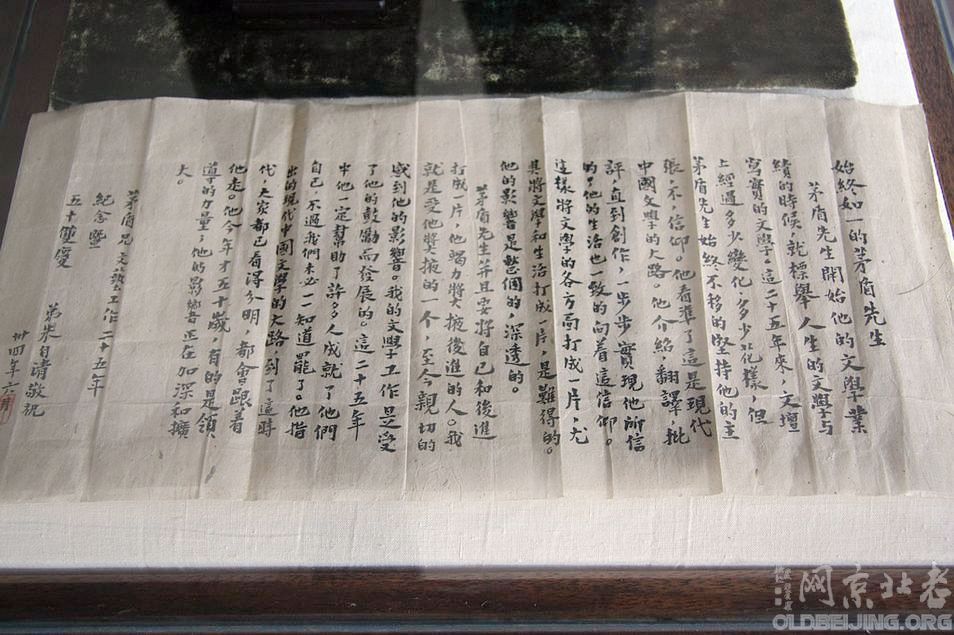 始終如一的茅盾先生
茅盾先生開始他的文學業
績的時候,就標舉人生的文學與
寫實的文學。這二十五年來,文壇
上經過多少變化,多少花樣,但
茅盾先生始終不移的堅持他的主
張,不,信仰。他看準了這是現代
中國文學的大路。他介紹,翻譯,批
評,直到創作,一步步實現他所信
的。他的生活也一致的向着這信仰。
這樣將文學的各方面打成一片,尤
其將文學和生活打成一片,是難得的。
他的影響是整個的,深透的。
茅盾先生并且要將自己和後進
打成一片,他竭力獎掖後進的人。我
就是受他獎掖的一個,至今親切的
感到他的影響。我的文學工作是受
了他的鼓勵而發展的。這二十五年
中他一定幫助了許多人成就了他們
自己,不過我們未必一一知道罷了。他指
出的現代中國文學的大路,到了這時
代,大家都已看得分明,都會跟着
他走。他今年才五十歲,有的是領
導的力量;他的影響正在加深和擴
大。
茅盾兄文藝工作二十五年
紀念暨
五十雙慶
弟朱自清敬祝
卅四年六月
老北京网
OLDBEIJING.ORG